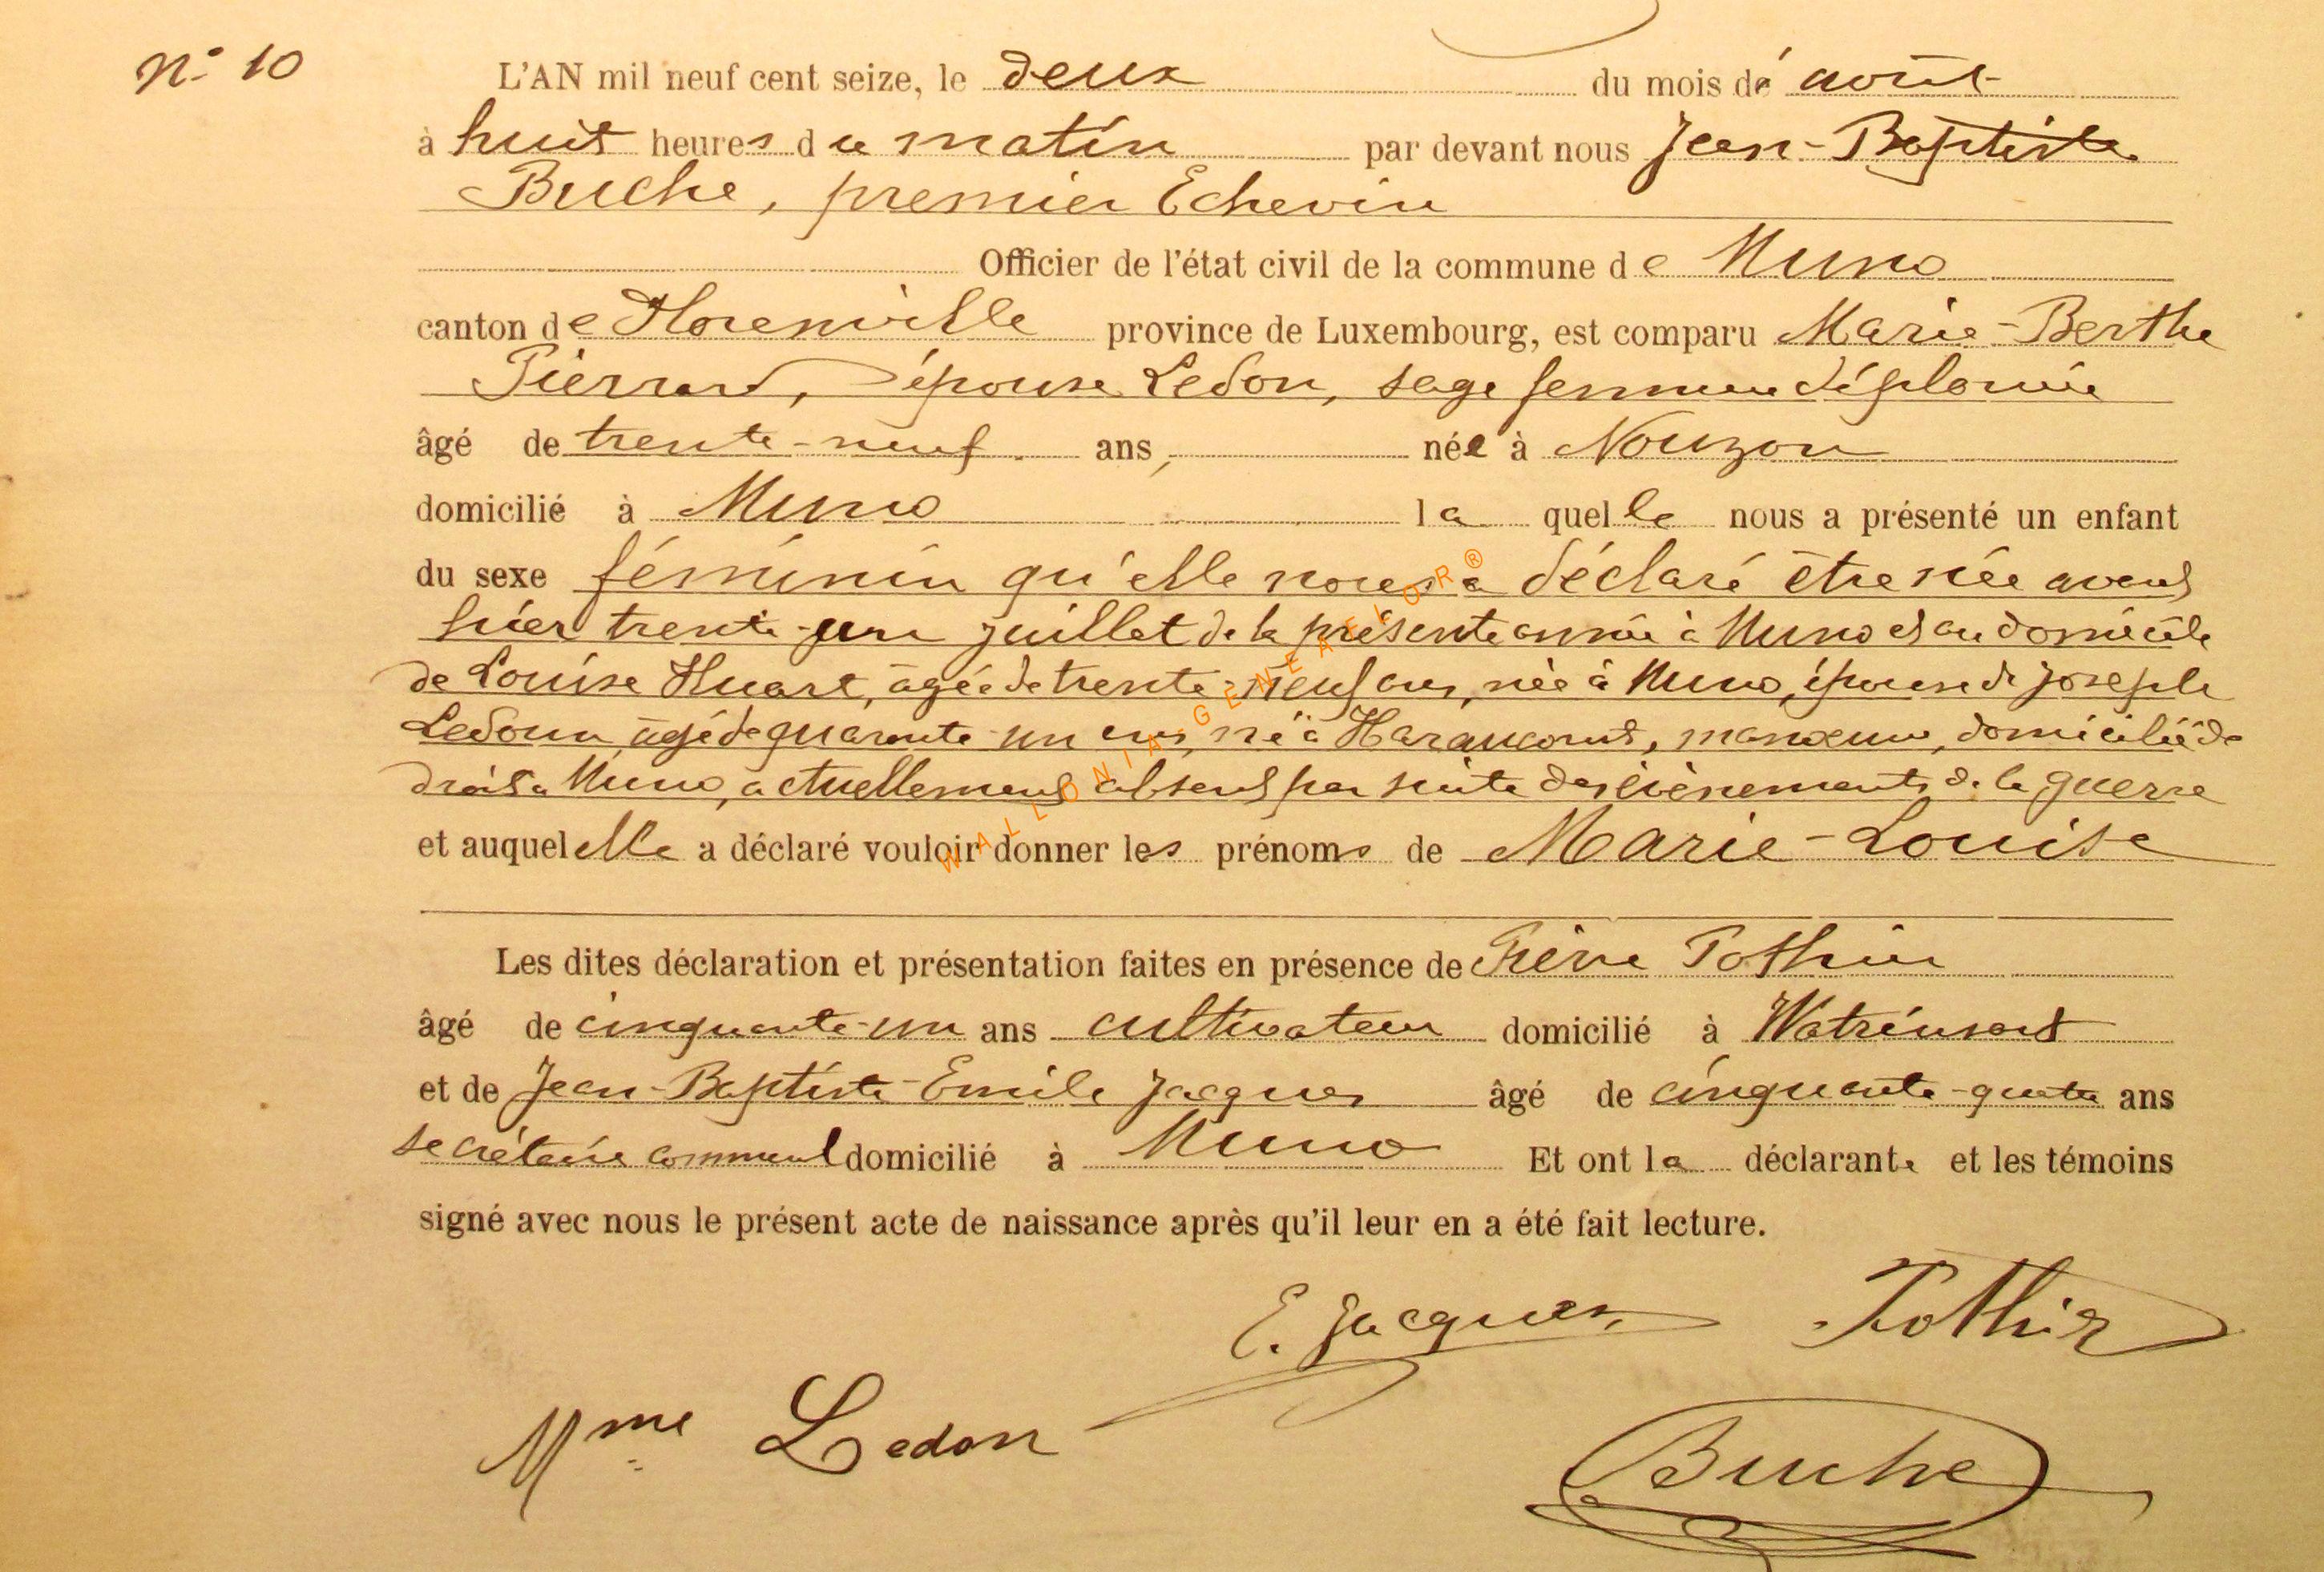 N° 10
L'AN mil neuf cent seize, le deux du mois de août
à huit heures du matin par devant nous Jean-Baptiste
Buche, premier Echevin
Officier de l'état civil de la commune de Muno
canton de Florenville province de Luxembourg, est comparu Marie-Berthe
Pierrard, épouse Ledon, sage femme diplomée
âgé de trente-neuf ans, née à Nouzon
domicilié à Muno laquelle nous a présenté un enfant
du sexe féminin qu'elle nous a déclaré être née avant
hier trente-un juillet de la présente année à Muno et au domicile
de Louise Huart, âgée de trente-neuf ans, née à Muno, épouse de Joseph
Ledoux, âgé de quarante-un ans, né à Haraucourt, manœuvre, domicilié de
droit à Muno, actuellement absent par suite des évènements de la guerre
et auquel elle a déclaré vouloir donner les prénoms de Marie-Louise
Les dites déclaration et présentation faites en présence de Pierre Pothin
âgé de cinquante-un ans cultivateur domicilié à Watrinsart
et de Jean-Baptiste-Emile Jacques âgé de cinquante-quatre ans
secrétaire communal domicilié à Muno Et ont la déclarante et les témoins
signé avec nous le présent acte de naissance après qu'il leur en a été fait lecture.
E. Jacques Pothin
Mme Ledon
Buche
WALLONIA GENEAFLOR®